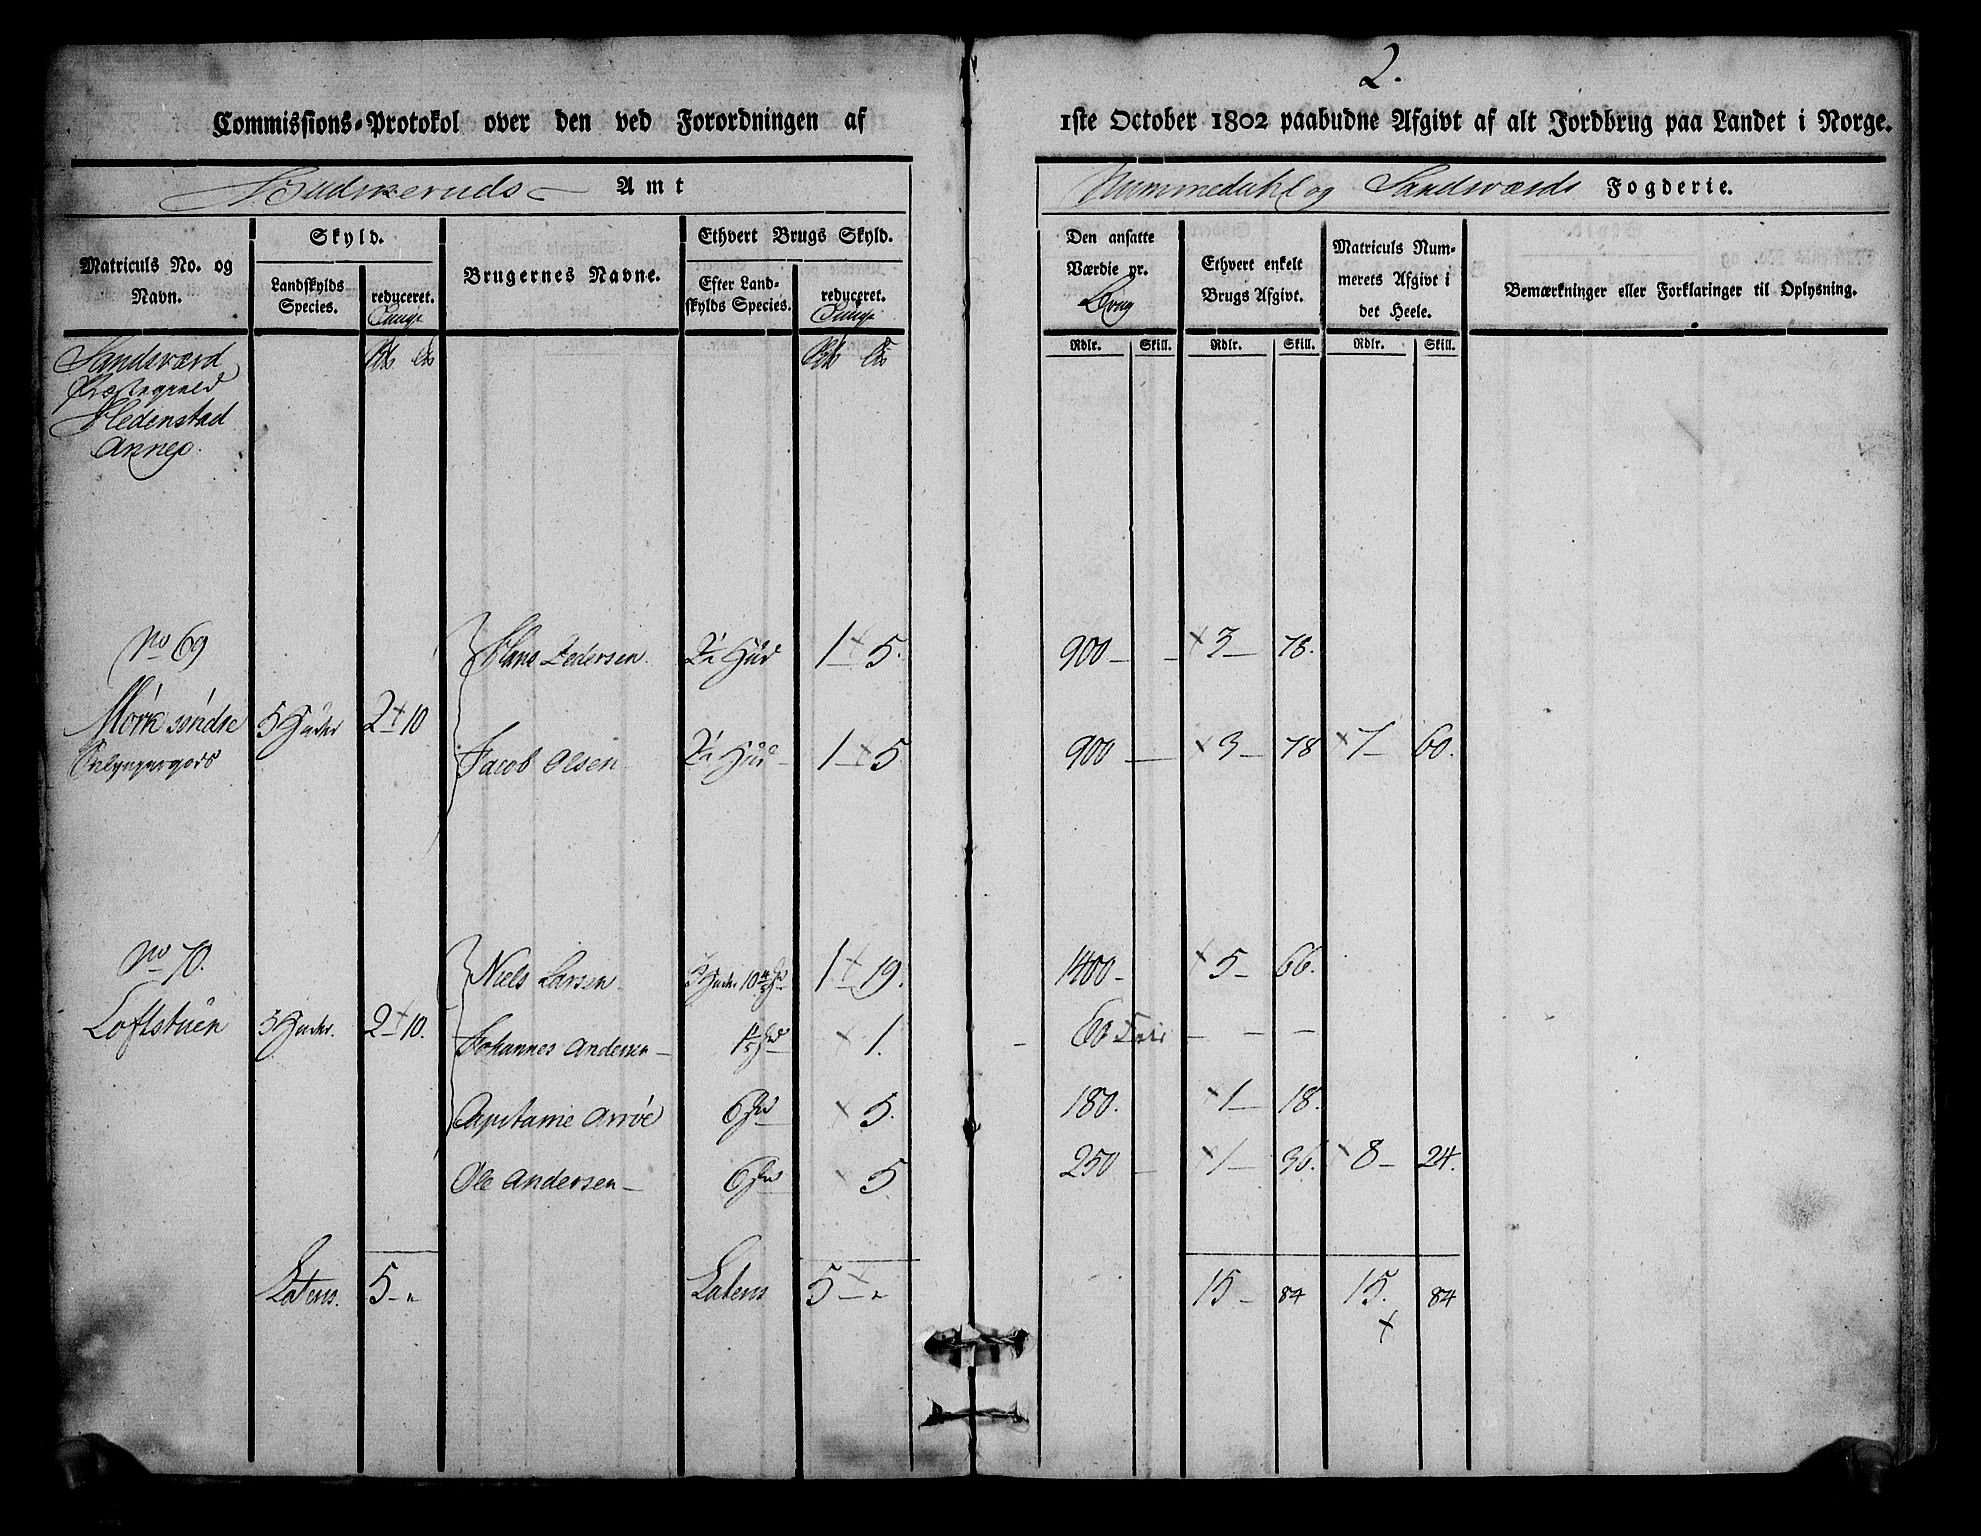 2.
Commissions-Protokol over den ved Forordningen af 1ste October 1802 paabudne Afgivt af alt Jordbrug paa Landet i Norge.
Budskeruds Amt Nummedahl og Sandsværds Fogderie.
Matriculs No. og Navn.
Skyld.
Landskylds Species.
reduceret.
Tunge
Brugernes Navne.
Ethvert Brugs Skyld.
Efter Landskylds Species.
reduceret.
Tunge
Den ansatte Værdie pr. Brug
Ethvert enkelt Brugs Afgivt.
Matriculs Nummerets Afgivt i det Heele.
Bemærkninger eller Forklaringer til Oplysning.
Rdlr. Skill. Rdlr. Skill. Rdlr. Skill.
Sandsværd
Præstegield
Hedenstad
Annex.
No 69 Hans Pedersen 2½ Hud 1 5. 900 3 78.
Mörk söndre 5 Huder 2 10
Jacob Olsen 2½ Hud 1 5 900 3 78 7 60.
No 70. Niels Larsen 1 19. 1400 5 66.
Loftstuen 5 Huder. 2 10. Johannes Andersen 1. 60 Frie
Capitaine Arröe 6 5. 180. 1 18.
Ole Andersen 6 5 250 1 36. 8 24.
Latens. 5 Latens 5 15 84 15. 84